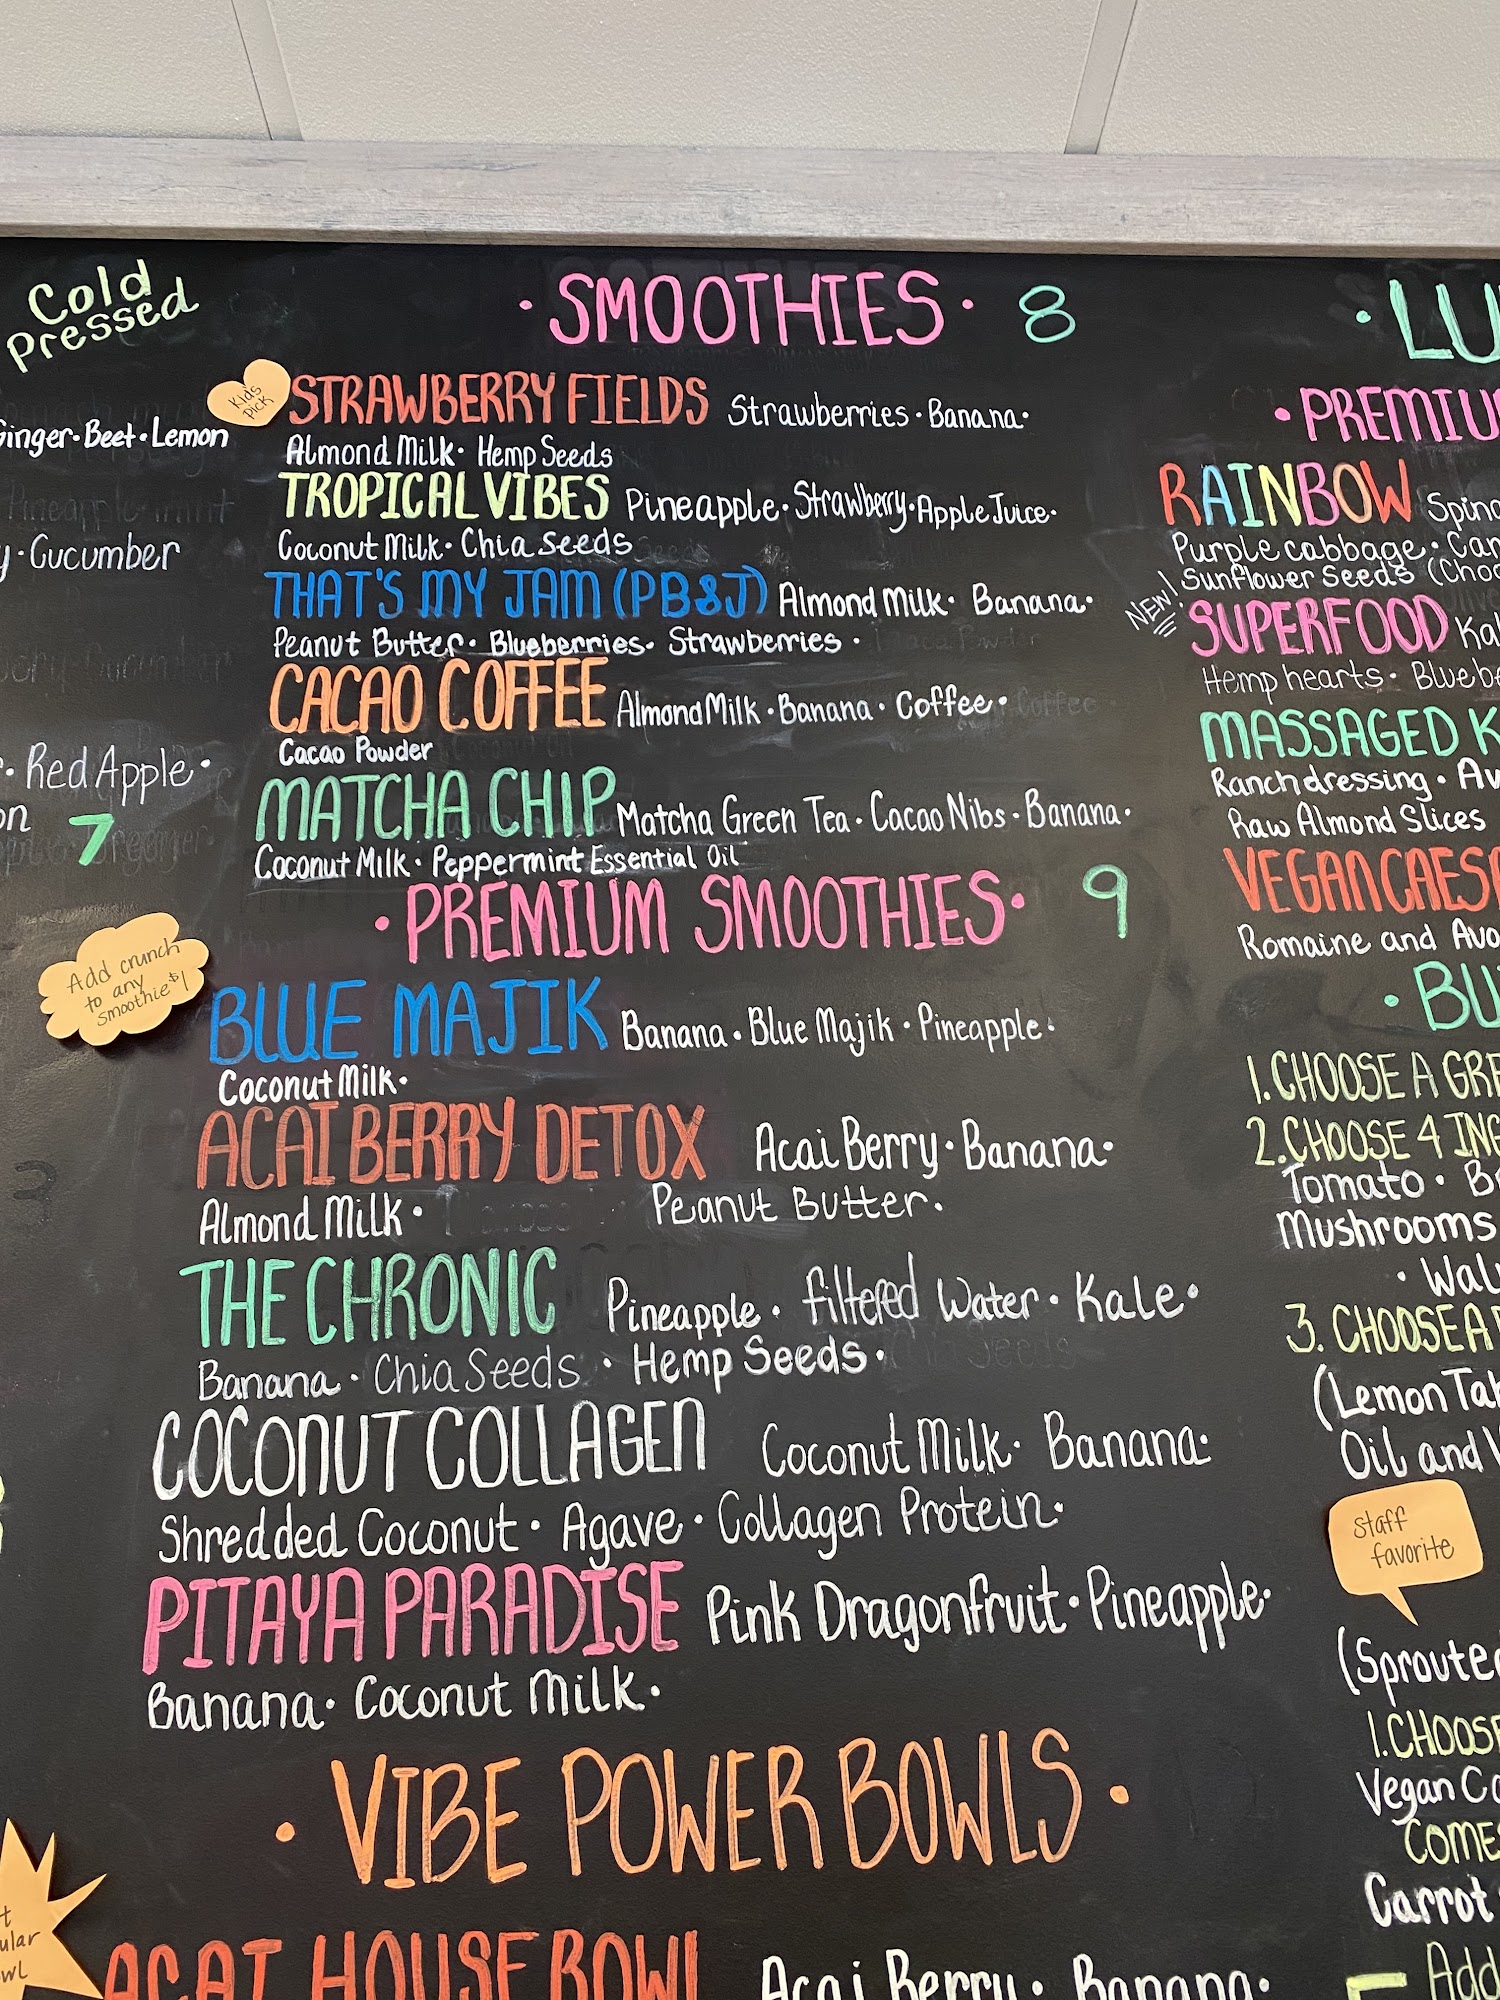 Cold
Pressed
Ginger·Beet·Lemon
·Cucumber
·Red Apple·
7
·SMOOTHIES· 8
Kid's
Pick
STRAWBERRY FIELDS Strawberries·Banana·
Almond Milk·Hemp Seeds
TROPICAL VIBES Pineapple·Strawberry·Apple Juice·
Coconut Milk·Chia Seeds
THAT'S MY JAM (PB&J) Almond Milk·Banana·
Peanut Butter·Blueberries·Strawberries·
CACAO COFFEE Almond Milk·Banana·Coffee·
Cacao Powder
MATCHA CHIP Matcha Green Tea·Cacao Nibs·Banana·
Coconut Milk·Peppermint Essential Oil
·PREMIUM SMOOTHIES· 9
Add crunch
to any
smoothie $1
BLUE MAJIK Banana·Blue Majik·Pineapple·
Coconut Milk·
ACAI BERRY DETOX Acai Berry·Banana·
Almond Milk· Peanut Butter·
THE CHRONIC Pineapple·filtered Water·Kale·
Banana·Chia Seeds·Hemp Seeds·
COCONUT COLLAGEN Coconut Milk·Banana·
Shredded Coconut·Agave·Collagen Protein·
PITAYA PARADISE Pink Dragonfruit·Pineapple·
Banana·Coconut Milk·
·VIBE POWER BOWLS·
ACAI HOUSE BOWL Acai Berry·Banana·
·LU
·PREMIU
RAINBOW Spin
Purple cabbage·
Sunflower Seeds (Choo
NEW!
SUPERFOOD Kal
Hemp hearts·Bluebe
MASSAGED K
Ranch dressing·Av
Raw Almond Slices
VEGAN CAES
Romaine and Avo
·BU
1.CHOOSE A GRE
2.CHOOSE 4 ING
Tomato·B
Mushrooms
·Wal
3. CHOOSE A
(Lemon Ta
Oil and
Staff
favorite
(Sproute
1.CHOOSE
Vegan C
COME
Carrot
Add